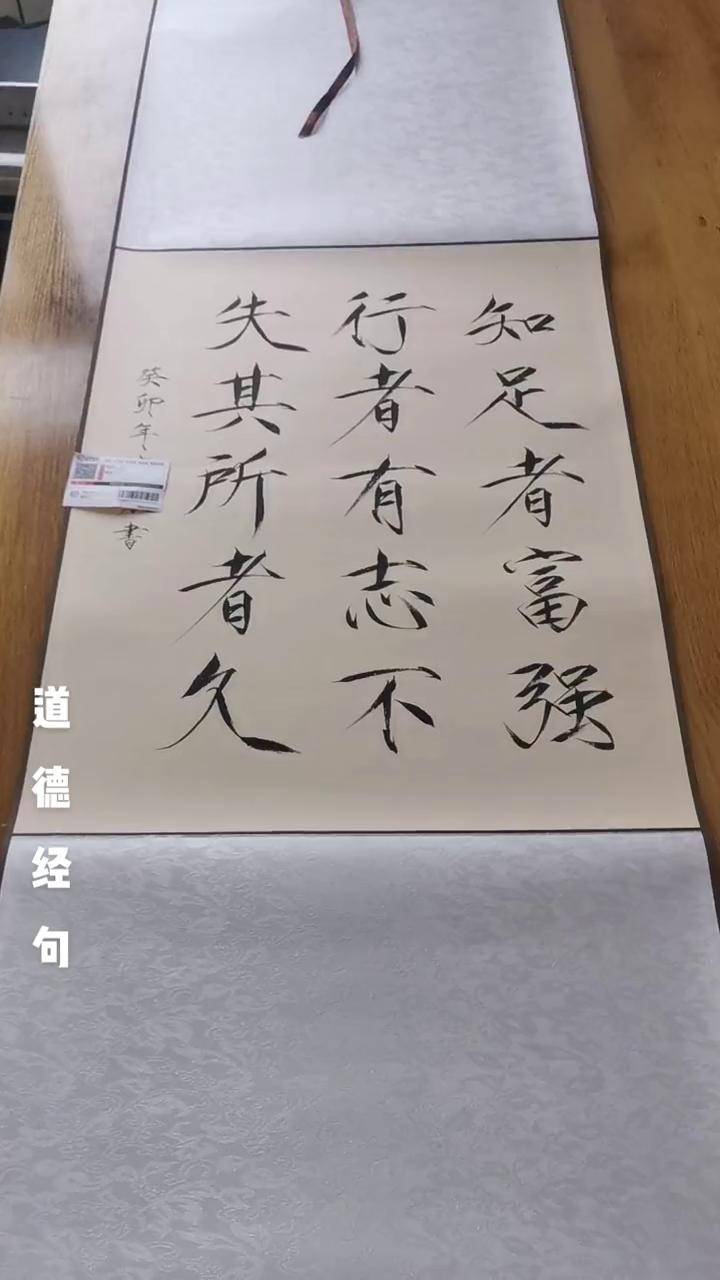 知足者富强
行者有志不
失其所者久
癸卯年
书
道德经句